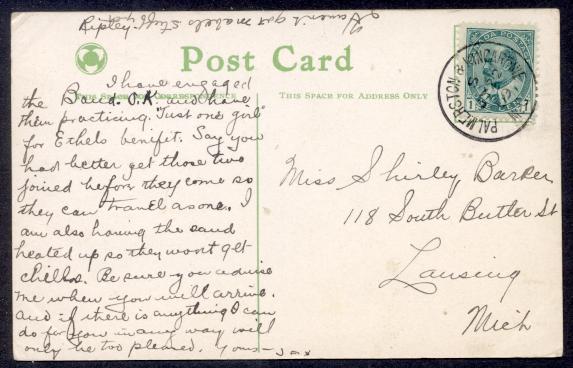 Haven't got mabels stuff yet
Ripley
Post Card
THIS SPACE FOR CORRESPONDENCE
THIS SPACE FOR ADDRESS ONLY
CANADA POSTAGE
1
PALMERSTON & KINCARDINE
I have engaged
the Band. O.K. and have
them practicing "Just one girl"
for Ethels benifit. Say you
had better get those two
joined before they come so
they can travel as one. I
am also having the sand
heated up so they wont get
chills. Be sure you advise
me when you will arrive.
and if there is anything I can
do for you in any way will
only be too pleased. Yours - Jax
Miss Shirley Barker
118 South Butler St
Lansing
Mich